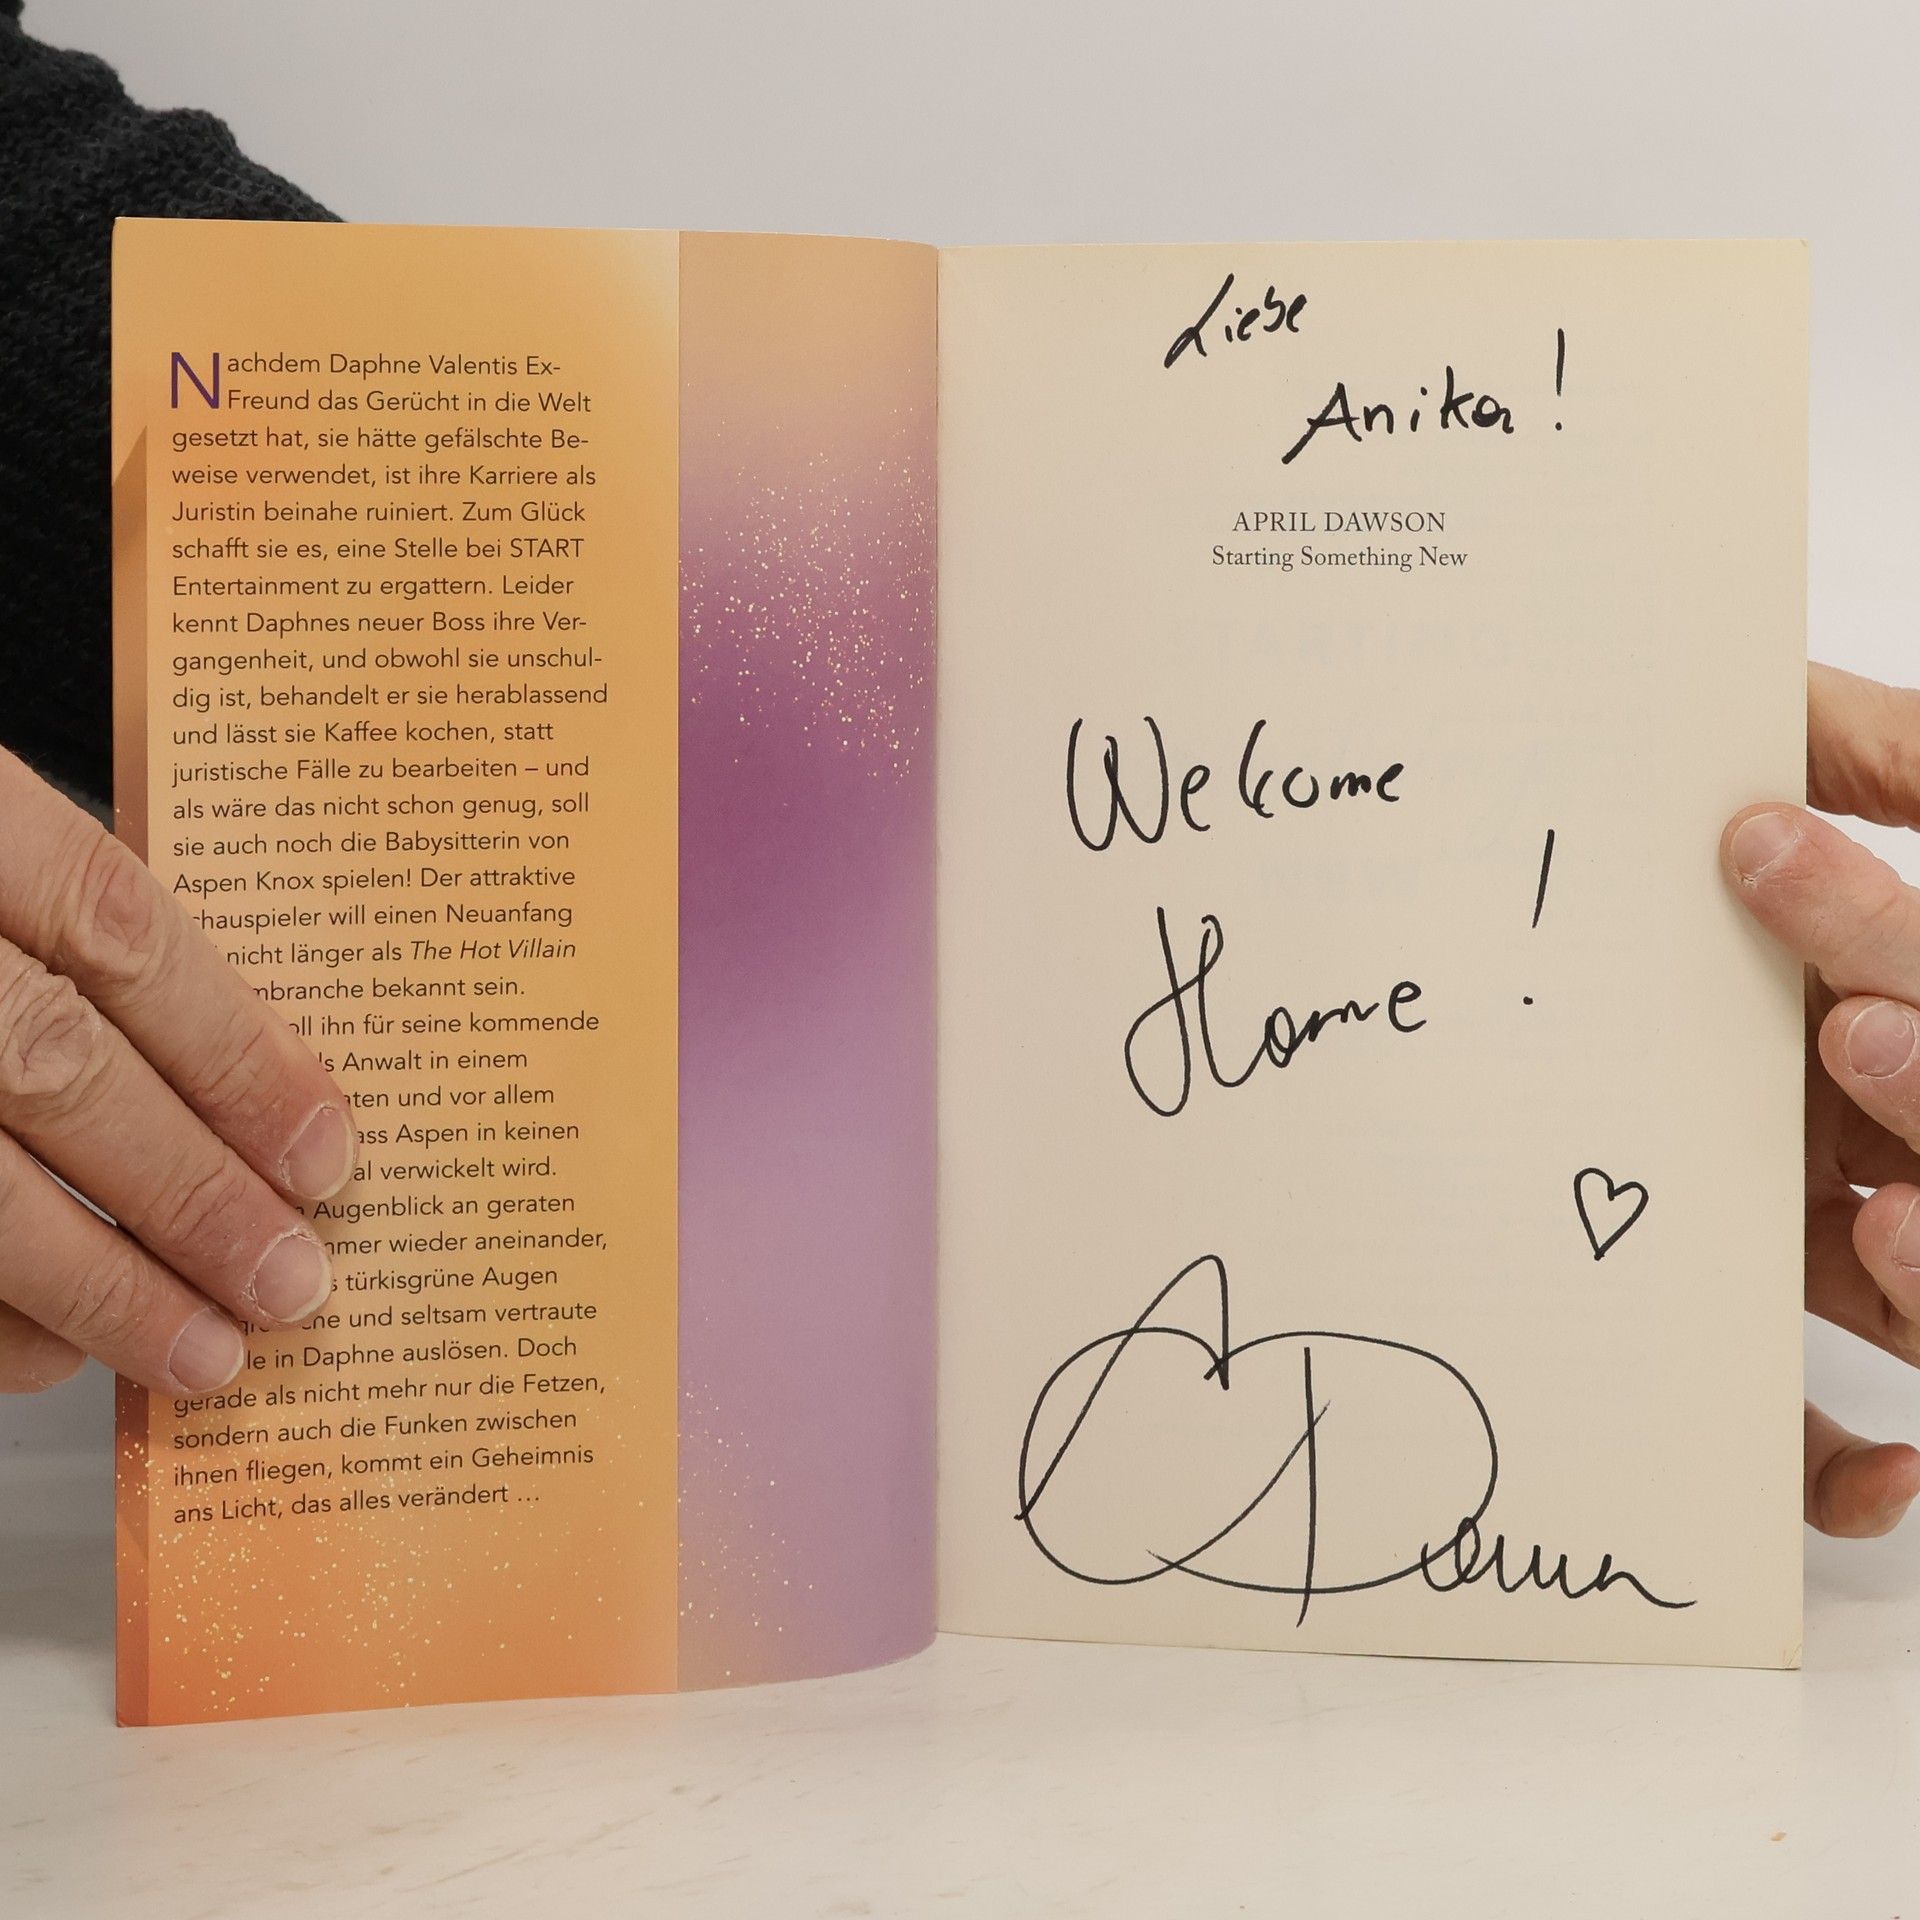 Nachdem Daphne Valentis Ex-
Freund das Gerücht in die Welt
gesetzt hat, sie hätte gefälschte Be-
weise verwendet, ist ihre Karriere als
Juristin beinahe ruiniert. Zum Glück
schafft sie es, eine Stelle bei START
Entertainment zu ergattern. Leider
kennt Daphnes neuer Boss ihre Ver-
gangenheit, und obwohl sie unschul-
dig ist, behandelt er sie herablassend
und lässt sie Kaffee kochen, statt
juristische Fälle zu bearbeiten – und
als wäre das nicht schon genug, soll
sie auch noch die Babysitterin von
Aspen Knox spielen! Der attraktive
will einen Neuanfang
nicht länger als The Hot Villain
bekannt sein.
ihn für seine kommende
Anwalt in einem
und vor allem
Aspen in keinen
verwickelt wird.
Augenblick an geraten
wieder aneinander,
türkisgrüne Augen
und seltsam vertraute
in Daphne auslösen. Doch
gerade als nicht mehr nur die Fetzen,
sondern auch die Funken zwischen
ihnen fliegen, kommt ein Geheimnis
ans Licht, das alles verändert ...
Liebe
Anika!
APRIL DAWSON
Starting Something New
Welcome
Home!